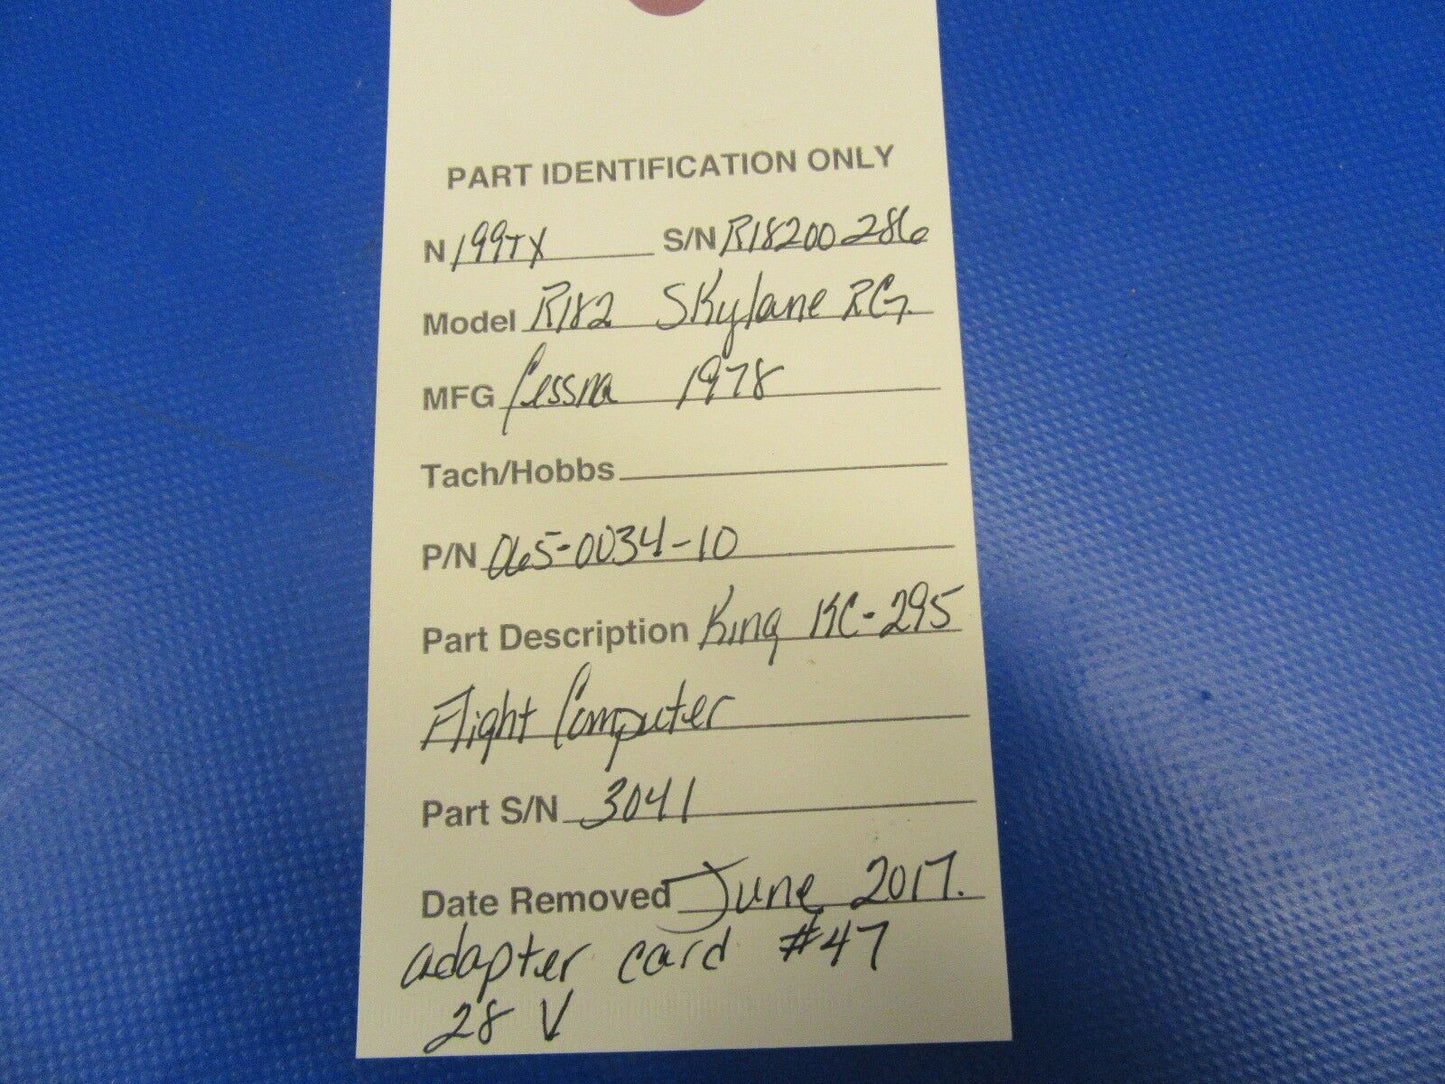 PART IDENTIFICATION ONLY
N 199TX S/N R18200286
Model R182 Skylane RG.
MFG Cessna 1978
Tach/Hobbs
P/N 065-0034-10
Part Description King KC-295
Flight Computer
Part S/N 3041
Date Removed June 2017.
adapter card #47
28 V